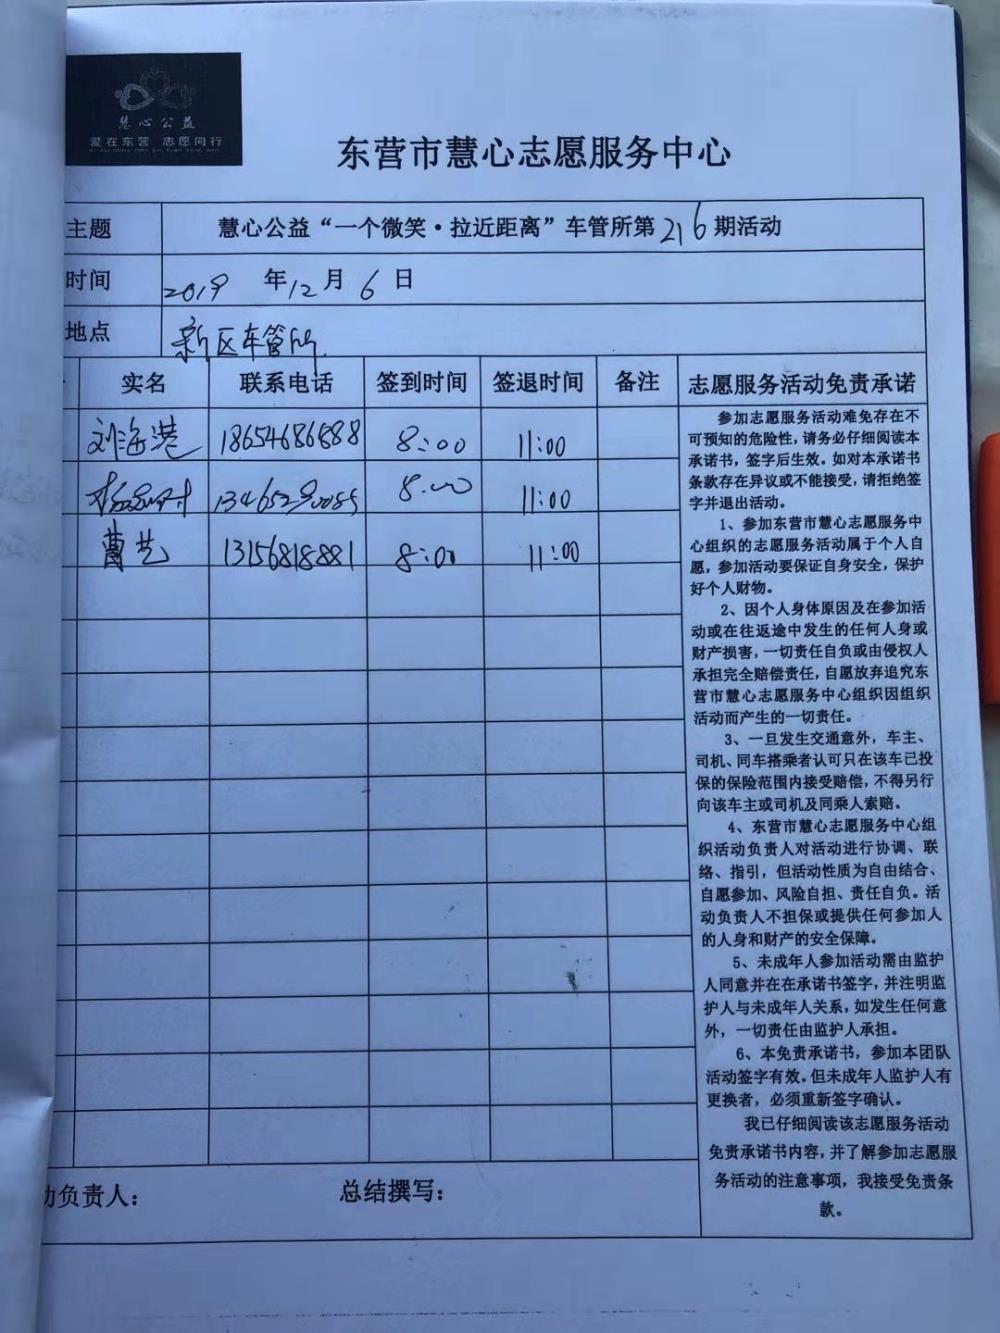 慧心公益
爱在东营 志愿同行
东营市慧心志愿服务中心
主题 慧心公益“一个微笑·拉近距离”车管所第216期活动
时间 2019 年12月6日
地点 新区车管所
实名 联系电话 签到时间 签退时间 备注 志愿服务活动免责承诺
刘海港 18654686888 8:00 11:00
8:00 11:00
曹艺 13156818881 8:00 11:00
参加志愿服务活动难免存在不
可预知的危险性，请务必仔细阅读本
承诺书，签字后生效。如对本承诺书
条款存在异议或不能接受，请拒绝签
字并退出活动。
1、参加东营市慧心志愿服务中
心组织的志愿服务活动属于个人自
愿，参加活动要保证自身安全，保护
好个人财物。
2、因个人身体原因及在参加活
动或在往返途中发生的任何人身或
财产损害，一切责任自负或由侵权人
承担完全赔偿责任，自愿放弃追究东
营市慧心志愿服务中心组织因组织
活动而产生的一切责任。
3、一旦发生交通意外，车主、
司机、同车搭乘者认可只在该车已投
保的保险范围内接受赔偿，不得另行
向该车主或司机及同乘人索赔。
4、东营市慧心志愿服务中心组
织活动负责人对活动进行协调、联
络、指引，但活动性质为自由结合、
自愿参加、风险自担、责任自负。活
动负责人不担保或提供任何参加人
的人身和财产的安全保障。
5、未成年人参加活动需由监护
人同意并在在承诺书签字，并注明监
护人与未成年人关系，如发生任何意
外，一切责任由监护人承担。
6、本免责承诺书，参加本团队
活动签字有效。但未成年人监护人有
更换者，必须重新签字确认。
我已仔细阅读该志愿服务活动
免责承诺书内容，并了解参加志愿服
务活动的注意事项，我接受免责条
款。
动负责人： 总结撰写：